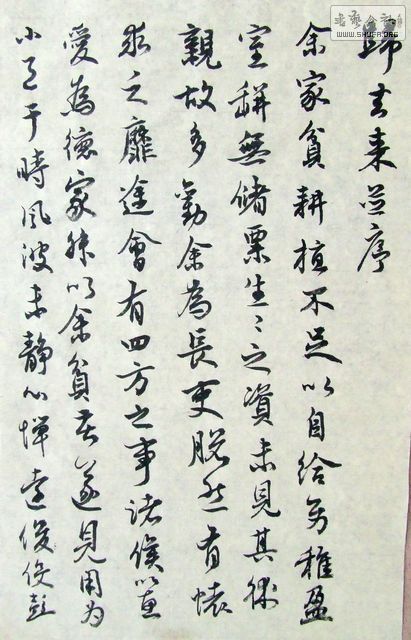 WWW.SHUFA.ORG
歸去來並序
余家貧耕植不足以自給幼稚盈
室缾無儲粟生〻之資未見其術
親故多勸余為長吏脫然有懷
求之靡途會有四方之事諸侯以惠
愛為德家叔以余貧苦遂見用為
小邑于時風波未靜心憚遠役彭